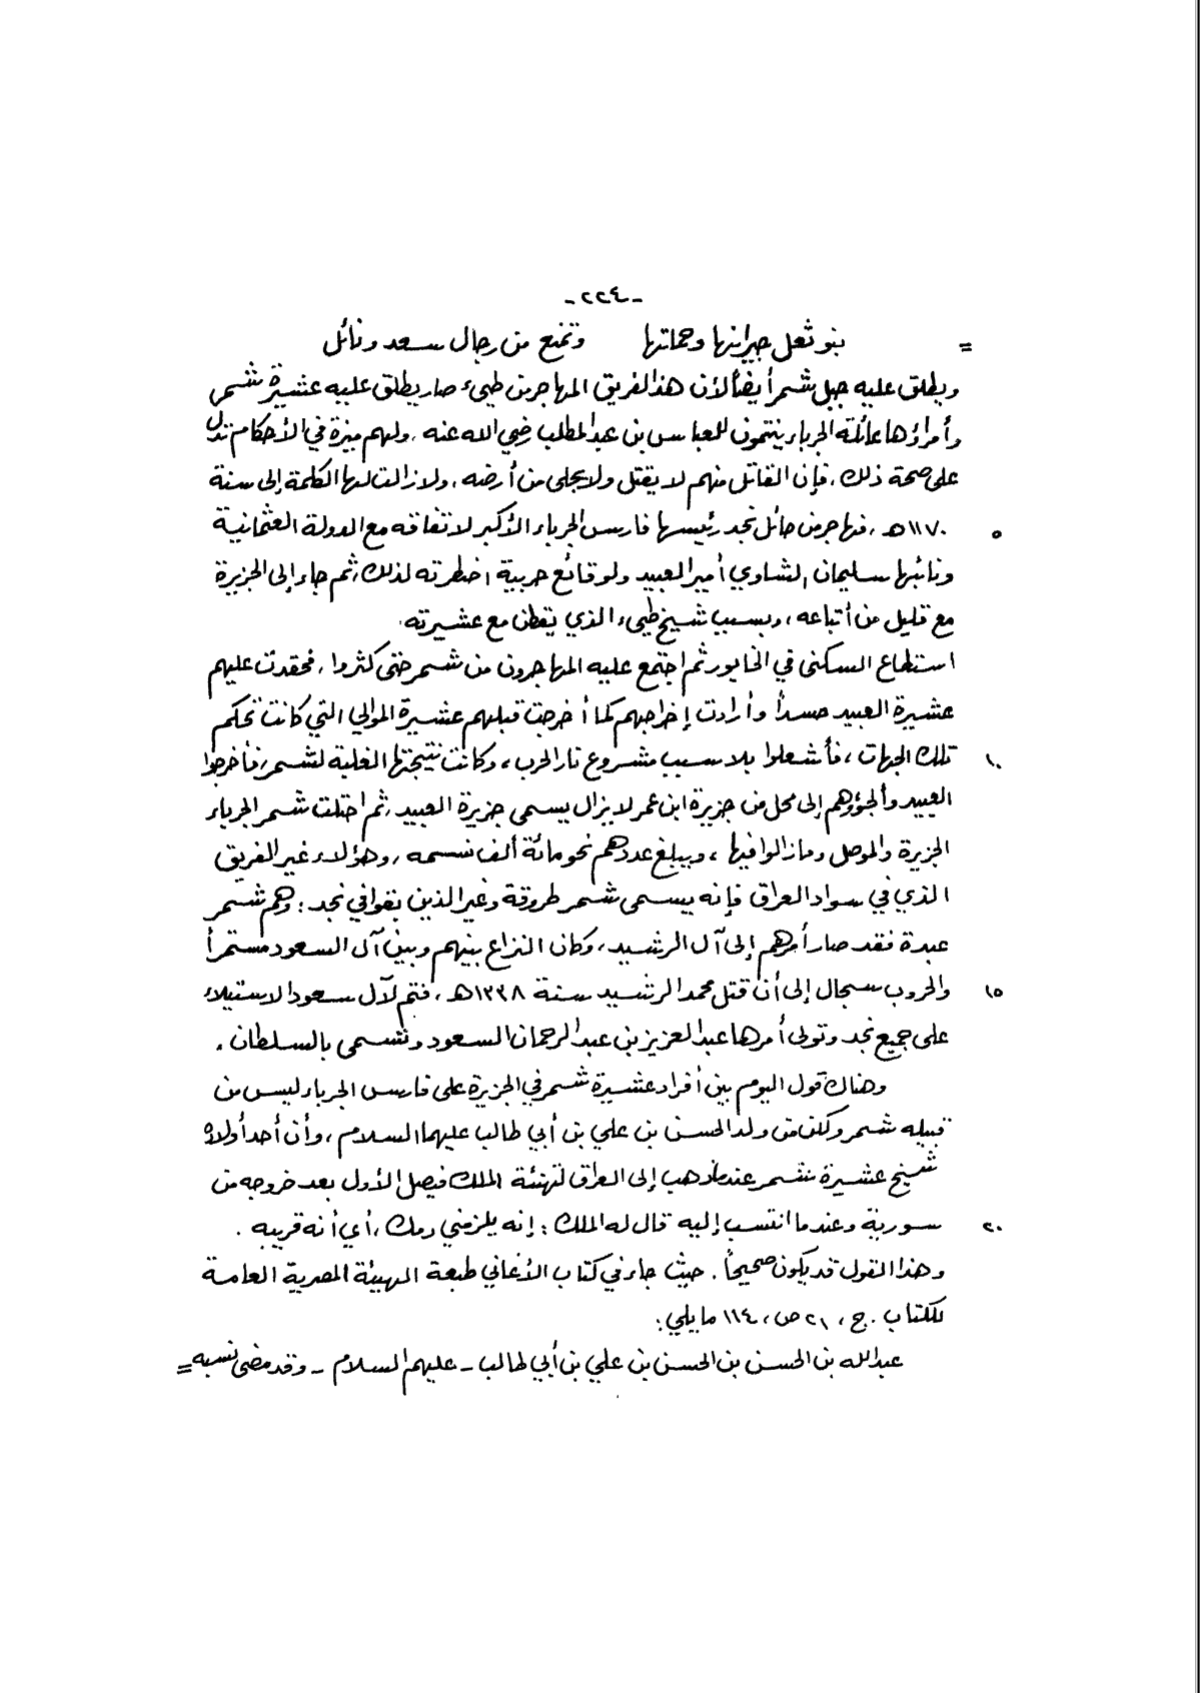 -٢٢٤-
= بنو ثعل جيرانها وحماتها وتمنع من رجال سعد ونائل
ويطلق عليه جبل شمر أيضاً لأن هذا الفريق المهاجر من طيىء صار يطلق عليه عشيرة شمر
وأمراؤها عائلة الجرباء ينتمون للعباس بن عبد المطلب رضي الله عنه ، ولهم ميزة في الأحكام تدل
على صحة ذلك ، فإن القاتل منهم لا يقتل ولا يجلى من أرضه ، ولا زالت لها الكلمة إلى سنة
٥ ١١٧٠هـ ، فهاجر من حائل نجد رئيسها فارس الجرباء الأكبر لاتفاقه مع الدولة العثمانية
ونائبها سليمان الشاوي أمير العبيد ولوقائع حربية اضطرته لذلك ، ثم جاء إلى الجزيرة
مع قليل من أتباعه ، وبسبب شيخ طيىء الذي يقطن مع عشيرته .
استطاع السكنى في الخابور ثم اجتمع عليه المهاجرون من شمر حتى كثروا ، فحقدت عليهم
عشيرة العبيد حسداً وأرادت إخراجهم كما أخرجت قبلهم عشيرة الموالي التي كانت تحكم
١٠ تلك الجهات ، فأشعلوا بلا سبب مشروع نار الحرب ، وكانت نتيجتها الغلبة لشمر ، فأخرجوا
العبيد وألجؤوهم إلى محل من جزيرة ابن عمر لا يزال يسمى جزيرة العبيد ، ثم احتلت شمر الجرباء
الجزيرة والموصل وما زالوا فيها ، ويبلغ عددهم نحو مائة ألف نسمه ، وهؤلاء غير الفريق
الذي في سواد العراق فإنه يسمى شمر طروقة وغير الذين بقوا في نجد : وهم شمر
عبدة فقد صار أمرهم إلى آل الرشيد ، وكان النزاع بينهم وبين آل السعود مستمراً
١٥ والحروب سجال إلى أن قتل محمد الرشيد سنة ١٣٣٨هـ ، فتم لآل سعود الاستيلاء
على جميع نجد وتولى أمرها عبد العزيز بن عبد الرحمان السعود وتسمى بالسلطان .
وهناك قول اليوم بين أفراد عشيرة شمر في الجزيرة على فارس الجرباء ليس من
قبيله شمر ولكن من ولد الحسن بن علي بن أبي طالب عليهما السلام ، وأن أحد أولاده
شيخ عشيرة شمر عندما ذهب إلى العراق لتهنئة الملك فيصل الأول بعد خروجه من
٢٠ سورية وعندما انتسب إليه قال له الملك : إنه يلزمني دمك ، أي أنه قريبه .
وهذا القول قد يكون صحيحاً . حيث جاء في كتاب الأغاني طبعة الهيئة المصرية العامة
للكتاب . ج ، ٢١ ص ، ١١٤ ما يلي :
عبد الله بن الحسن بن الحسن بن علي بن أبي طالب - عليهم السلام - وقد مضى نسبه =